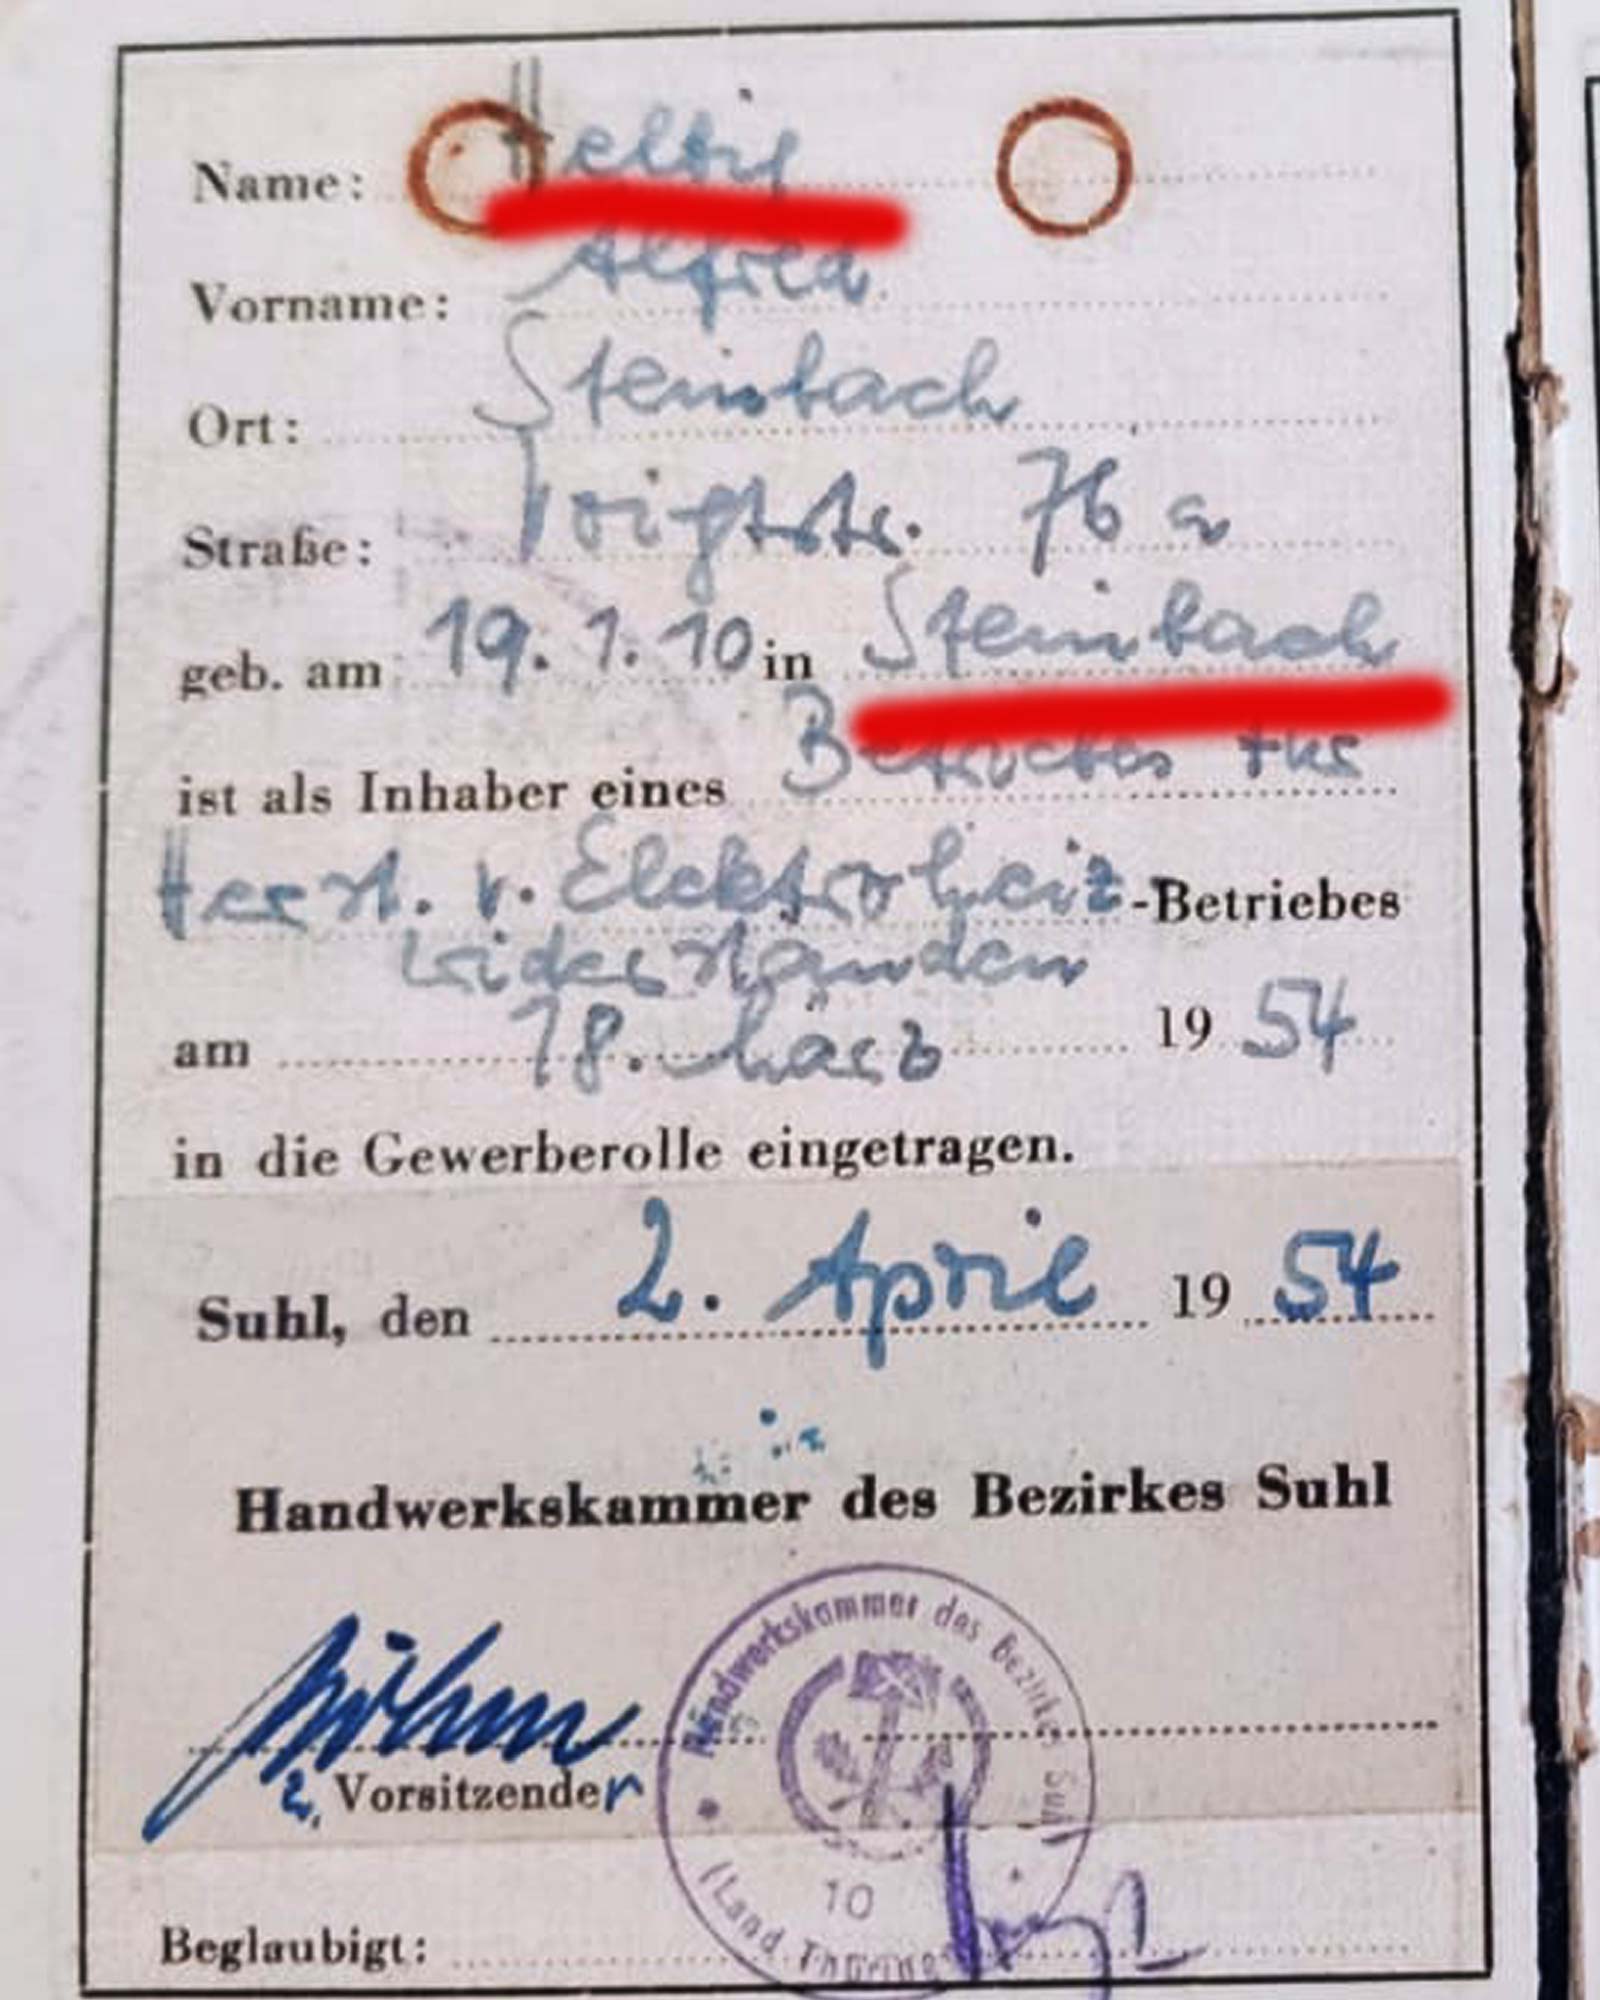 Name: Helbig
Vorname: Alfred
Ort: Steinbach
Straße: Voigtstr. 76 a
geb. am 19. 1. 10 in Steinbach
ist als Inhaber eines Betriebes für
Herst. v. Elektroheiz-Betriebes
widerständen
am 18. März 1954
in die Gewerberolle eingetragen.
Suhl, den 2. April 1954
Handwerkskammer des Bezirkes Suhl
Böhm
2. Vorsitzender
Handwerkskammer des Bezirkes Suhl
10
(Land Thüring
Beglaubigt: